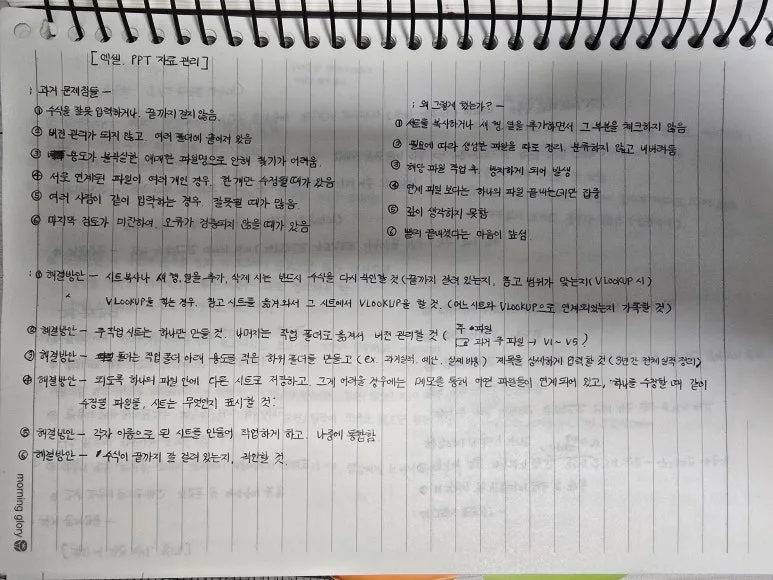 [엑셀. PPT 자료관리]
: 과거 문제점들 —
① 수식을 잘못 입력하거나. 끝까지 걸지 않음.
② 버전 관리가 되지 않고. 여러 폴더에 흩어져 있음
③ 용도가 불확실한 애매한 파일명으로 인해 찾기가 어려움
④ 서로 연계된 파일이 여러 개인 경우. 한 개만 수정될때가 있음
⑤ 여러 사람이 같이 입력하는 경우. 잘못될 때가 많음.
⑥ 마지막 검토가 미진하여. 오류가 검증되지 않을 때가 있음
: 왜 그렇게 했는가? —
① 시트를 복사하거나 새 행. 열을 추가하면서 그 부분을 체크하지 않음
② 필요에 따라 생성한 파일을 따로 정리. 분류하지 않고 내버려둠
③ 해당 파일 작업 후 방치하게 되어 발생
④ 연계 파일 보다는 하나의 파일 끝내는데만 집중
⑤ 깊이 생각하지 못함
⑥ 빨리 끝내겠다는 마음이 앞섬.
: ① 해결방안 — 시트복사나 새 행. 열을 추가, 삭제 시는 반드시 수식을 다시 확인할 것 (끝까지 걸려 있는지, 참고 범위가 맞는지(VLOOKUP 시)
VLOOKUP을 하는 경우. 참고 시트를 옮겨와서 그 시트에서 VLOOKUP을 할 것. (어느시트와 VLOOKUP으로 연계되었는지 기록할 것)
② 해결방안 — 주작업 시트는 하나만 만들 것. 나머지는 작업 폴더로 옮겨서 버전 관리할 것 ( 주 파일
과거 주 파일 → V1 ~ V5 )
③ 해결방안 — 폴더는 작업 폴더 아래 용도를 적은 하위 폴더를 만들고 (ex. 과거실적. 예산. 실제비용) 제목을 상세하게 입력할 것 (3년간 전체실적 정리)
④ 해결방안 — 되도록 하나의 파일 안에 다른 시트로 저장하고. 그게 어려울 경우에는 메모를 통해 어떤 파일들이 연계되어 있고, 하나를 수정할 때 같이
수정될 파일들, 시트는 무엇인지 표시할 것.
⑤ 해결방안 — 각자 이름으로 된 시트를 만들어 작업하게 하고. 나중에 통합함
⑥ 해결방안 — 수식이 끝까지 잘 걸려 있는지, 확인할 것.
morning glory